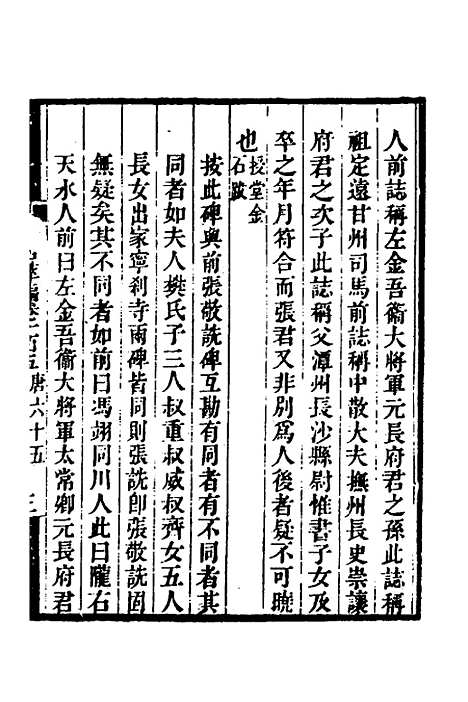 人前誌稱左金吾衞大將軍元長府君之孫此誌稱
祖定遠甘州司馬前誌稱中散大夫撫州長史崇讓
府君之次子此誌稱父潭州長沙縣尉惟書子女及
卒之年月符合而張君又非別爲人後者疑不可曉
也授堂金石跋
按此碑與前張敬詵碑互勘有同者有不同者其
同者如夫人樊氏子三人叔重叔威叔齊女五人
長女出家寧刹寺兩碑若同則張詵卽張敬詵固
無疑矣其不同者如前曰馮翊同川人此曰隴右
天水人前曰左金吾衞大將軍太常卿元長府君
卷一百五 唐六十五